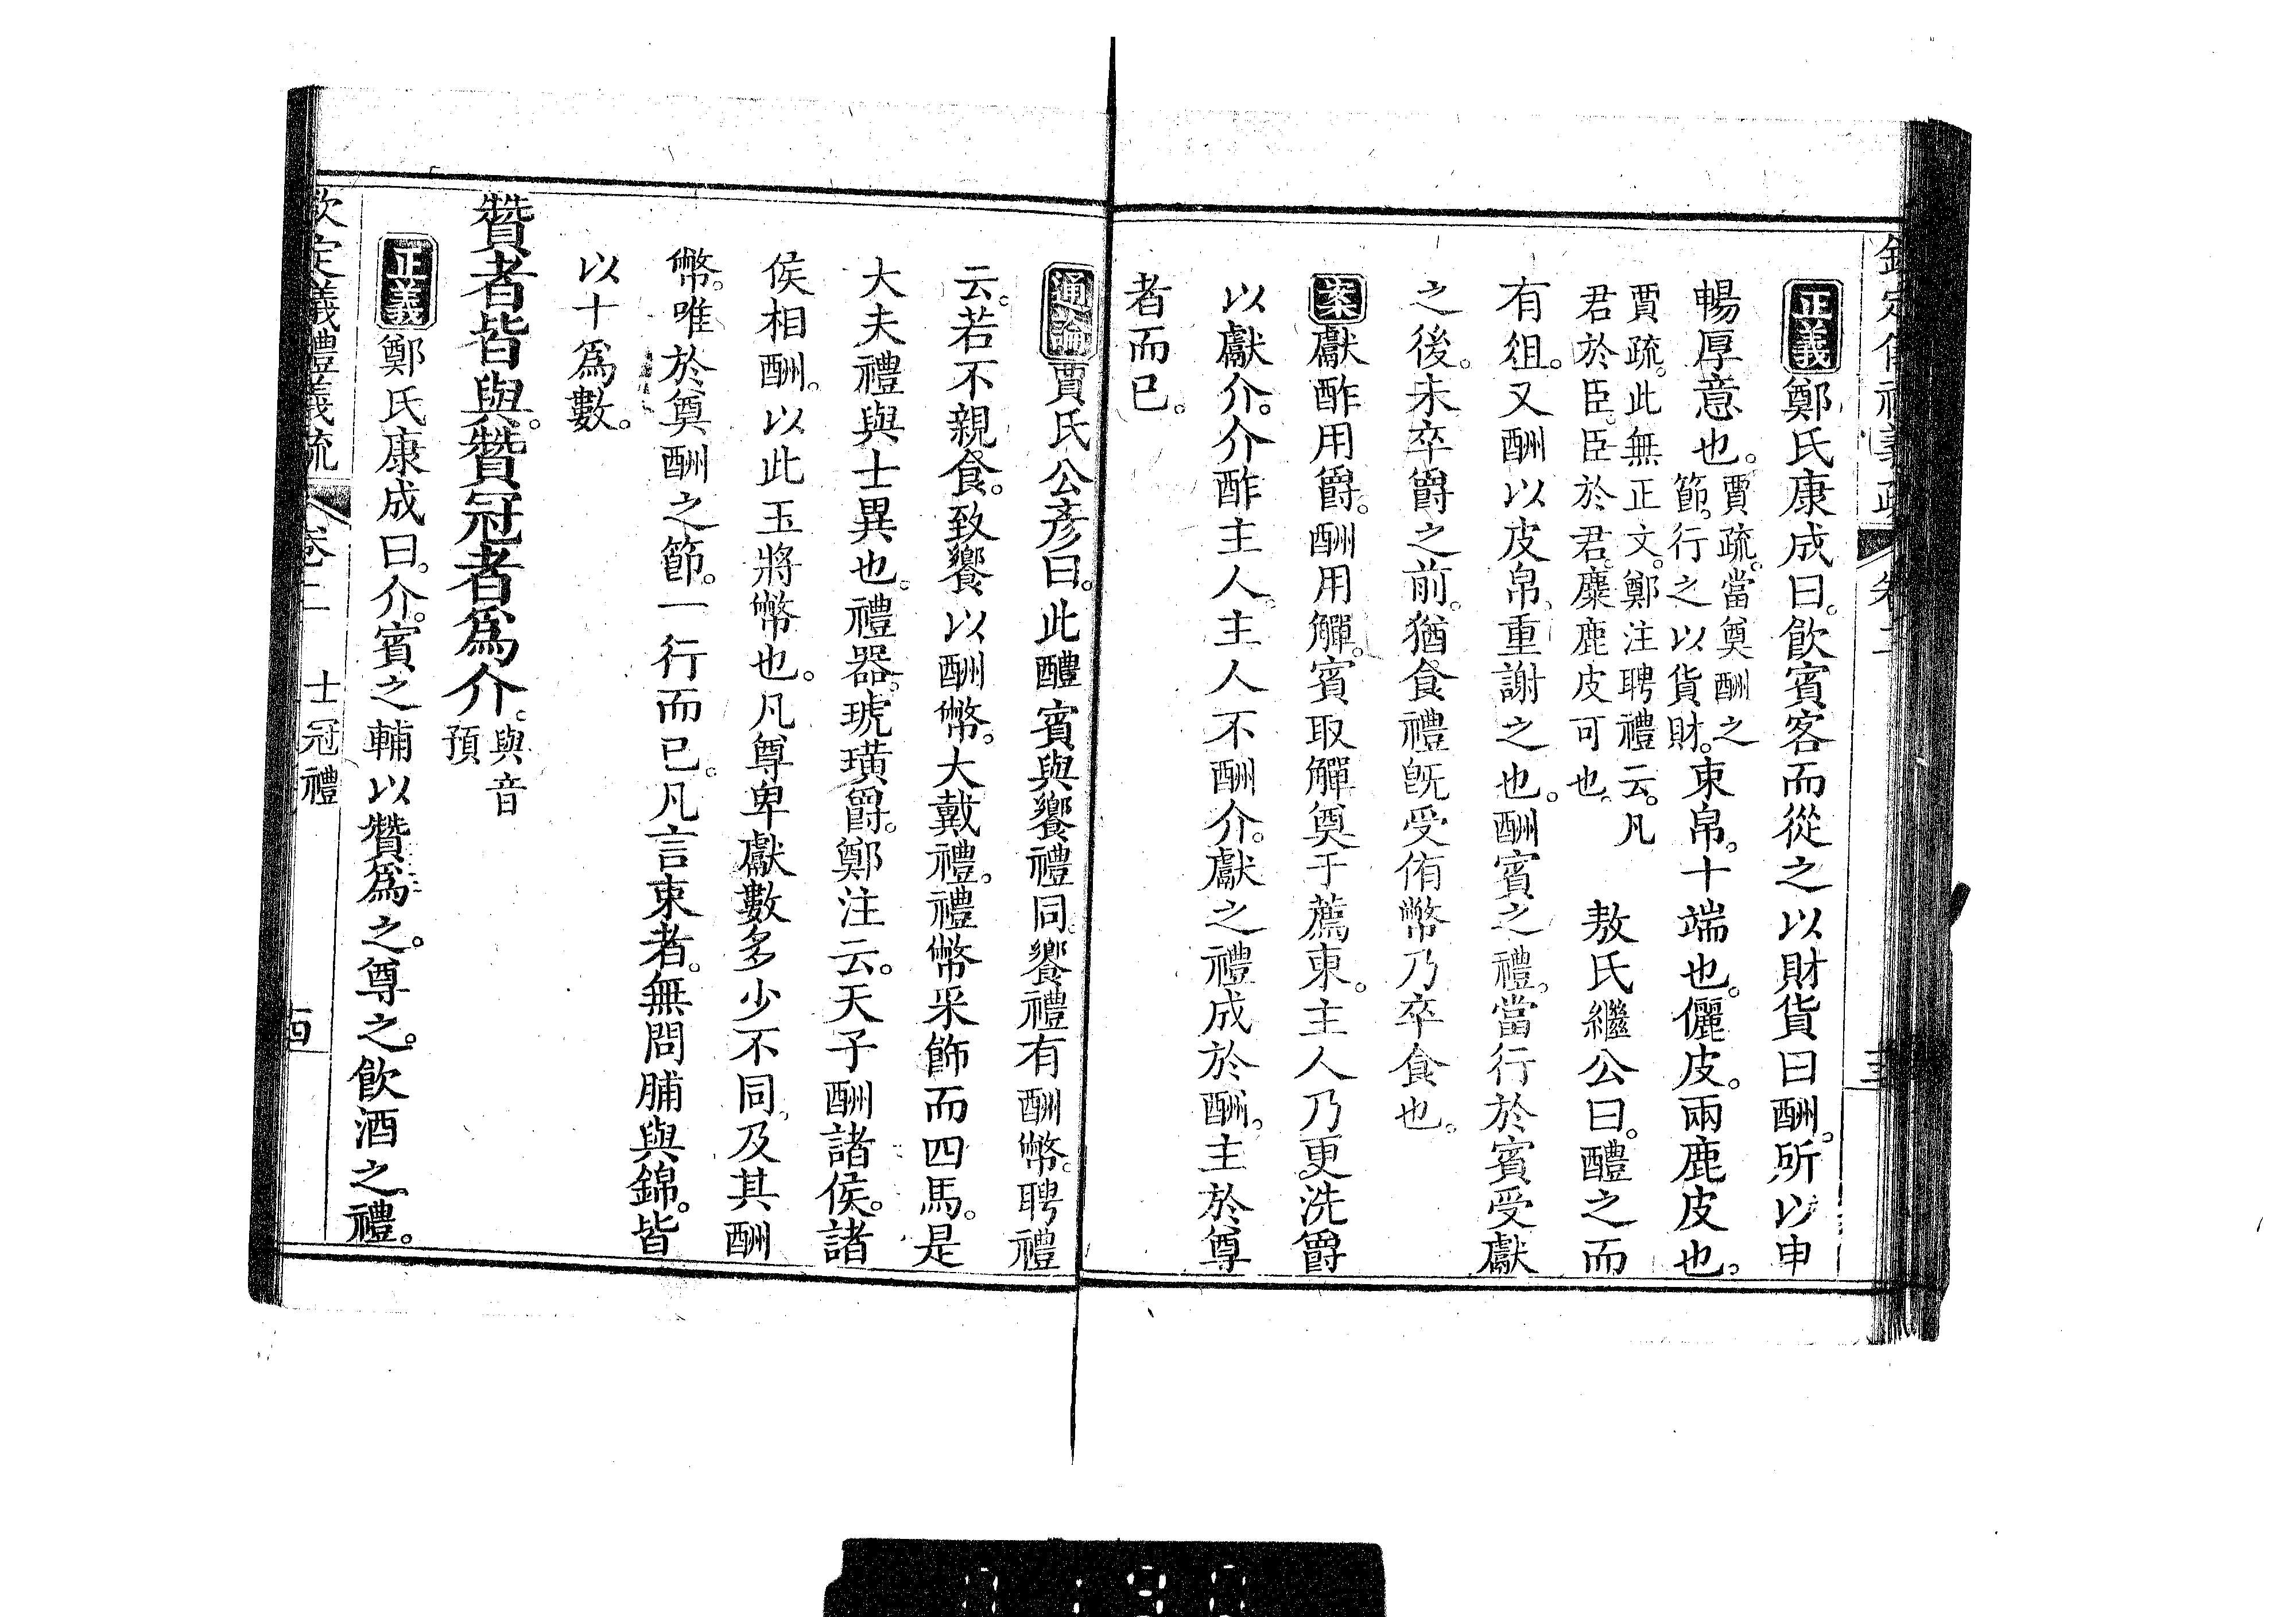 正義鄭氏康成曰。飲賓客而從之以財貨曰酬。所以申
暢厚意也。賈疏。當奠酬之節。行之以貨財。束帛。十端也。儷皮。兩鹿皮也。
賈疏。此無正文。鄭注聘禮云。凡君於臣。臣於君。麋鹿皮可也。 敖氏繼公曰。醴之而
有俎。又酬以皮帛。重謝之也。酬賓之禮。當行於賓受獻
之後。未卒爵之前。猶食禮旣受侑幣乃卒食也。
案獻酢用爵。酬用觶。賓取觶奠于薦東。主人乃更洗爵
以獻介。介酢主人。主人不酬介。獻之禮成於酬。主於尊
者而已。
通論賈氏公彥曰。此醴賓與饗禮同。饗禮有酬幣。聘禮
云。若不親食。致饗以酬幣。大戴禮。禮幣采飾而四馬。是
大夫禮與士異也。禮器。琥璜爵。鄭注云。天子酬諸侯。諸
侯相酬。以此玉將幣也。凡尊卑獻數多少不同。及其酬
幣。唯於奠酬之節。一行而已。凡言束者。無問脯與錦。皆
以十爲數。
贊者皆與。贊冠者爲介。與音預
正義鄭氏康成曰。介。賓之輔。以贊爲之。尊之。飲酒之禮。
欽定儀禮義疏 卷二 士冠禮